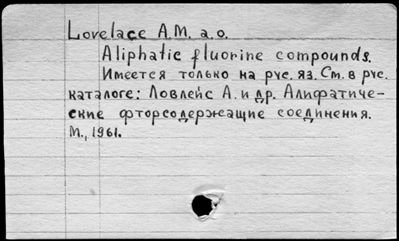 Lovelace A.M. a.o.
Aliphatic fluorine compounds.
Имеется только на рус. яз. См. в рус.
каталоге: Ловлейс А. и др. Алифатиче-
ские фторсодержащие соединения.
М., 1961.